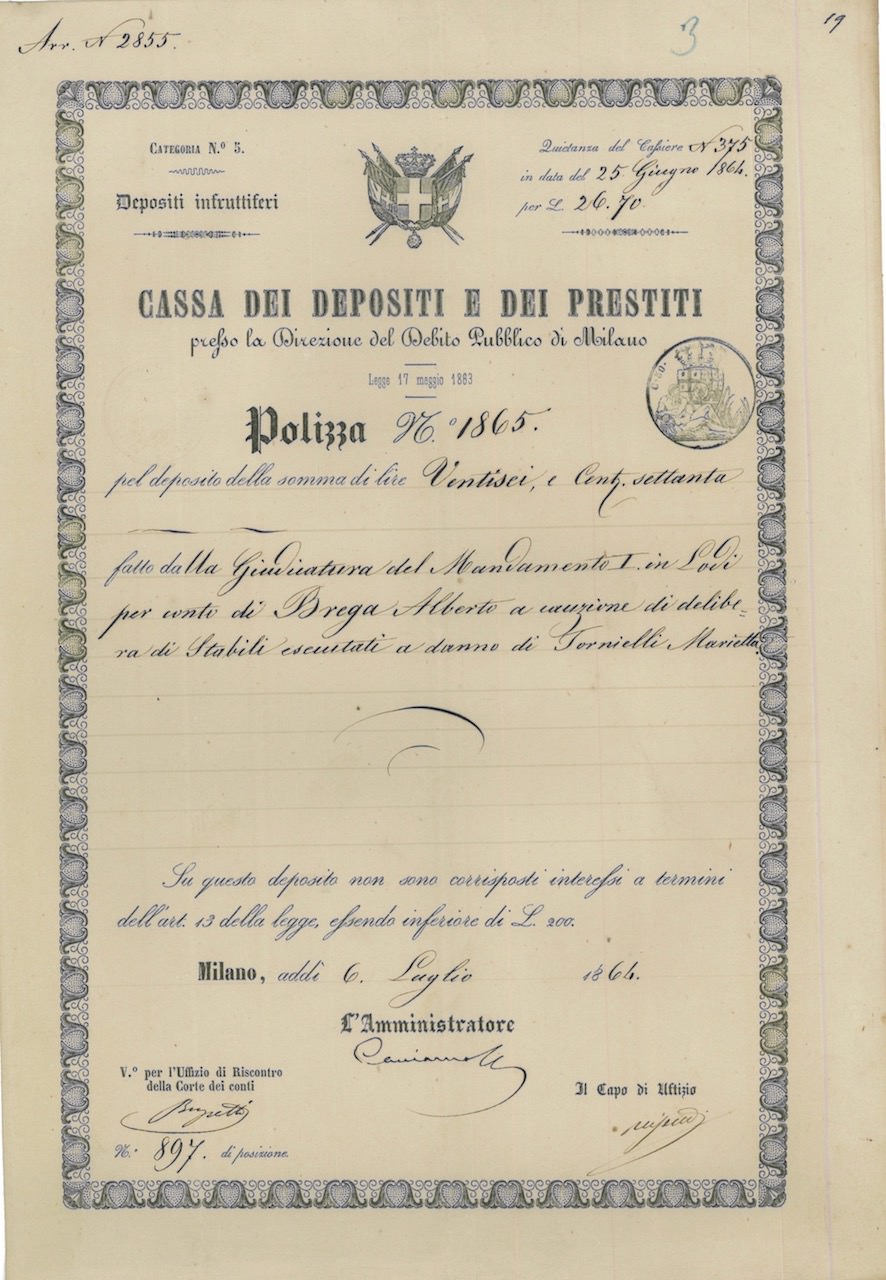 Arr. N 2855.
3
19
Categoria N.º 5.
Depositi infruttiferi
Quietanza del Cassiere N 375
in data del 25 Giugno 1864.
per L. 26.70.
CASSA DEI DEPOSITI E DEI PRESTITI
presso la Direzione del Debito Pubblico di Milano
Legge 17 maggio 1863
Polizza N.º 1865.
pel deposito della somma di lire Ventisei, e Cent. settanta
fatto dalla Giudicatura del Mandamento I. in Lodi
per conto di Brega Alberto a cauzione di delibe=
ra di Stabili esecutati a danno di Tornielli Marietta
Su questo deposito non sono corrisposti interessi a termini
dell'art. 13 della legge, essendo inferiore di L. 200.
Milano, addì 6. Luglio 1864.
L'Amministratore
V.º per l'Uffizio di Riscontro
della Corte dei conti
Il Capo di Uffizio
N.º 897. di posizione.